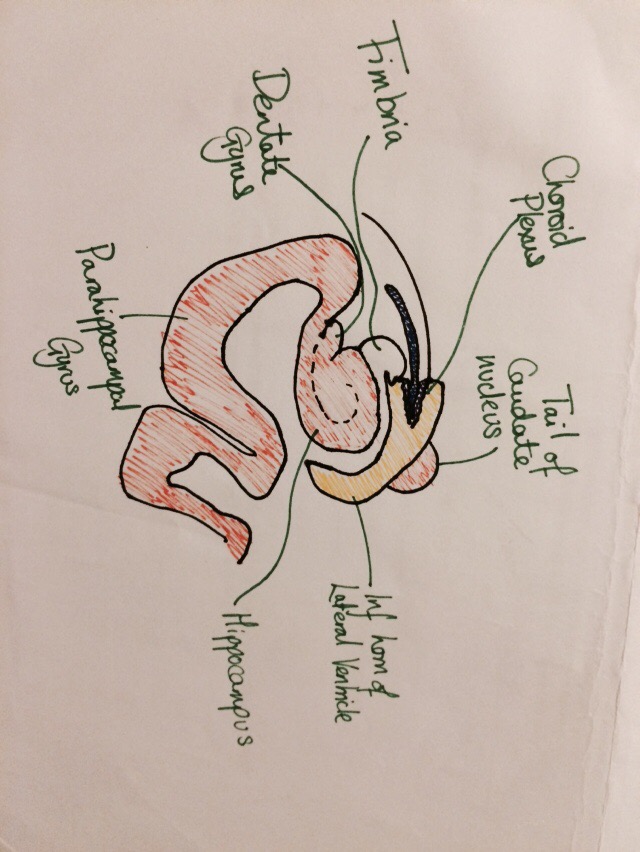 Choroid
Plexus
Tail of
Caudate
nucleus
Fimbria
Inf horn of
Lateral Ventricle
Dentate
Gyrus
Hippocampus
Parahippocampal
Gyrus